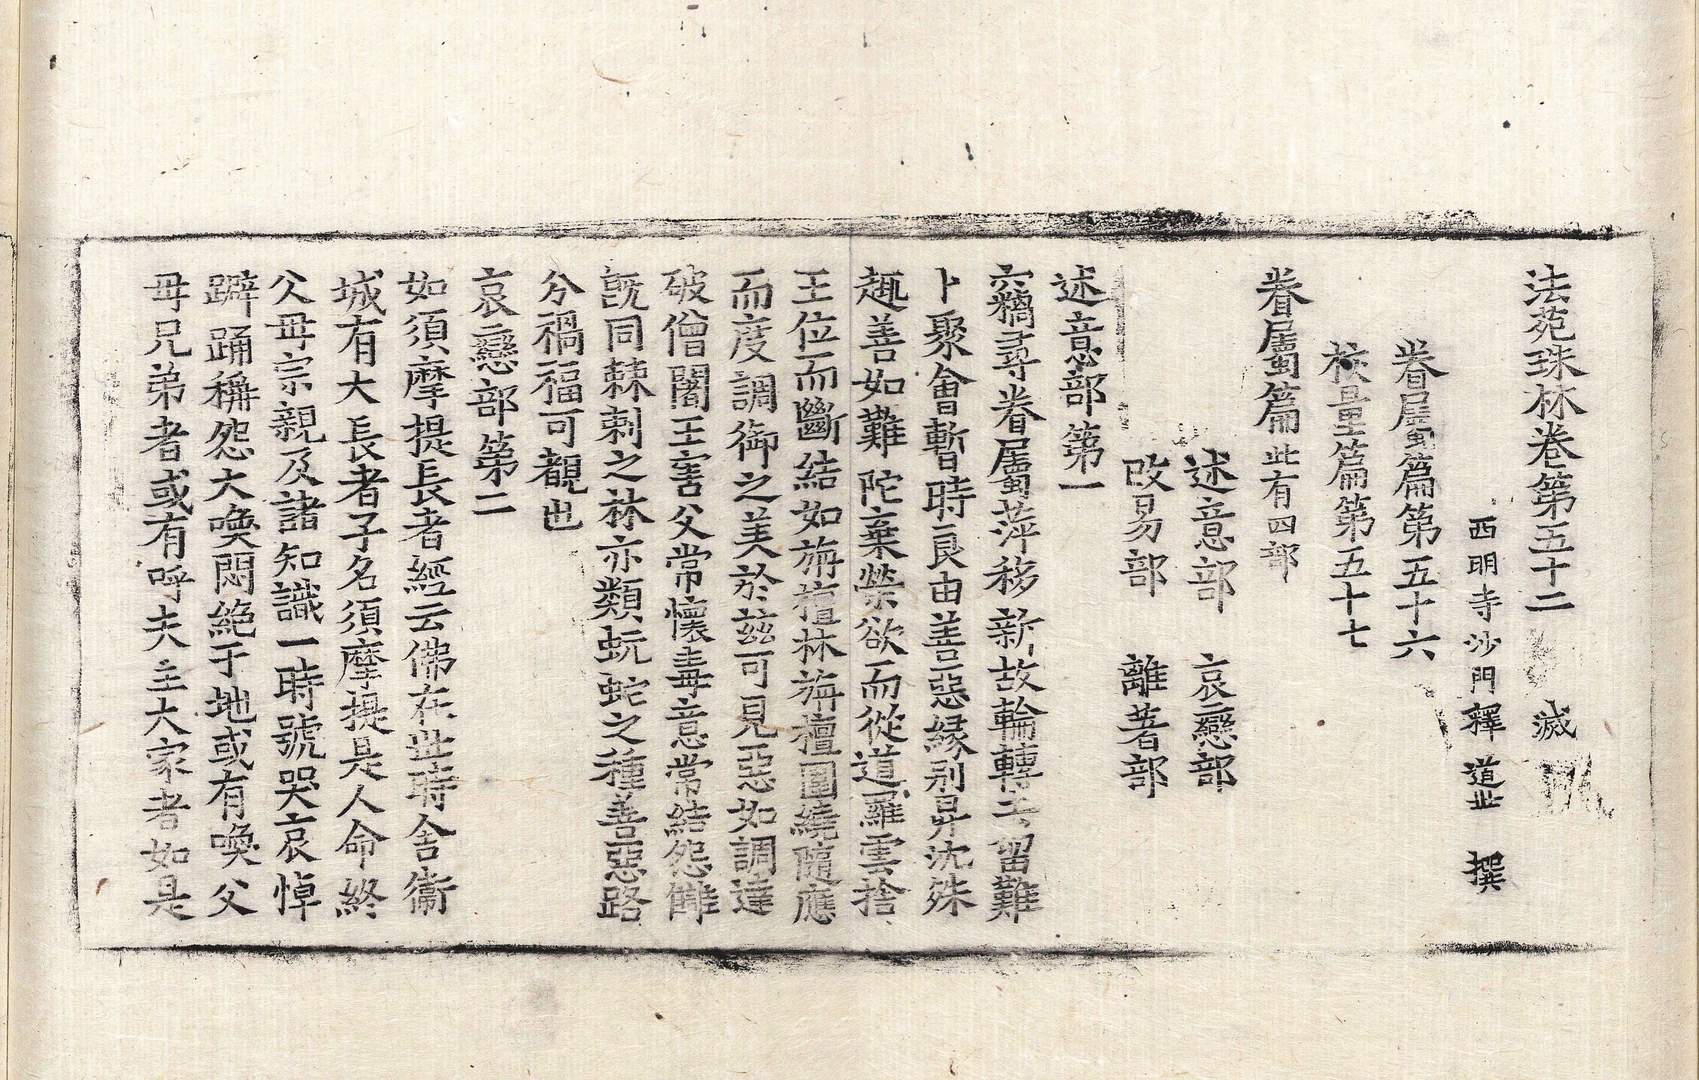 法苑珠林卷第五十二　滅
西明寺沙門釋道世　撰
眷屬篇第五十六
校量篇第五十七
眷屬篇此有四部
述意部　哀戀部
改易部　離著部
述意部第一
六㩲尋眷屬萍移新故輪轉去留難
卜聚會暫時良由善惡緣別昇沈殊
趣善如難陀棄榮欲而從道羅雲捨
王位而斷結如栴檀林栴檀圍繞隨應
而度調御之美於茲可見惡如調達
破僧闍王害父常懷毒意常結怨讎
旣同棘刺之林亦類蚖蛇之種善惡路
分禍福可覩也
哀戀部第二
如須摩提長者經云佛在世時舍衞
城有大長者子名須摩提是人命終
父母宗親及諸知識一時號哭哀悼
躃踊稱怨大喚悶絕于地或有喚父
母兄弟者或有呼夫主大家者如是